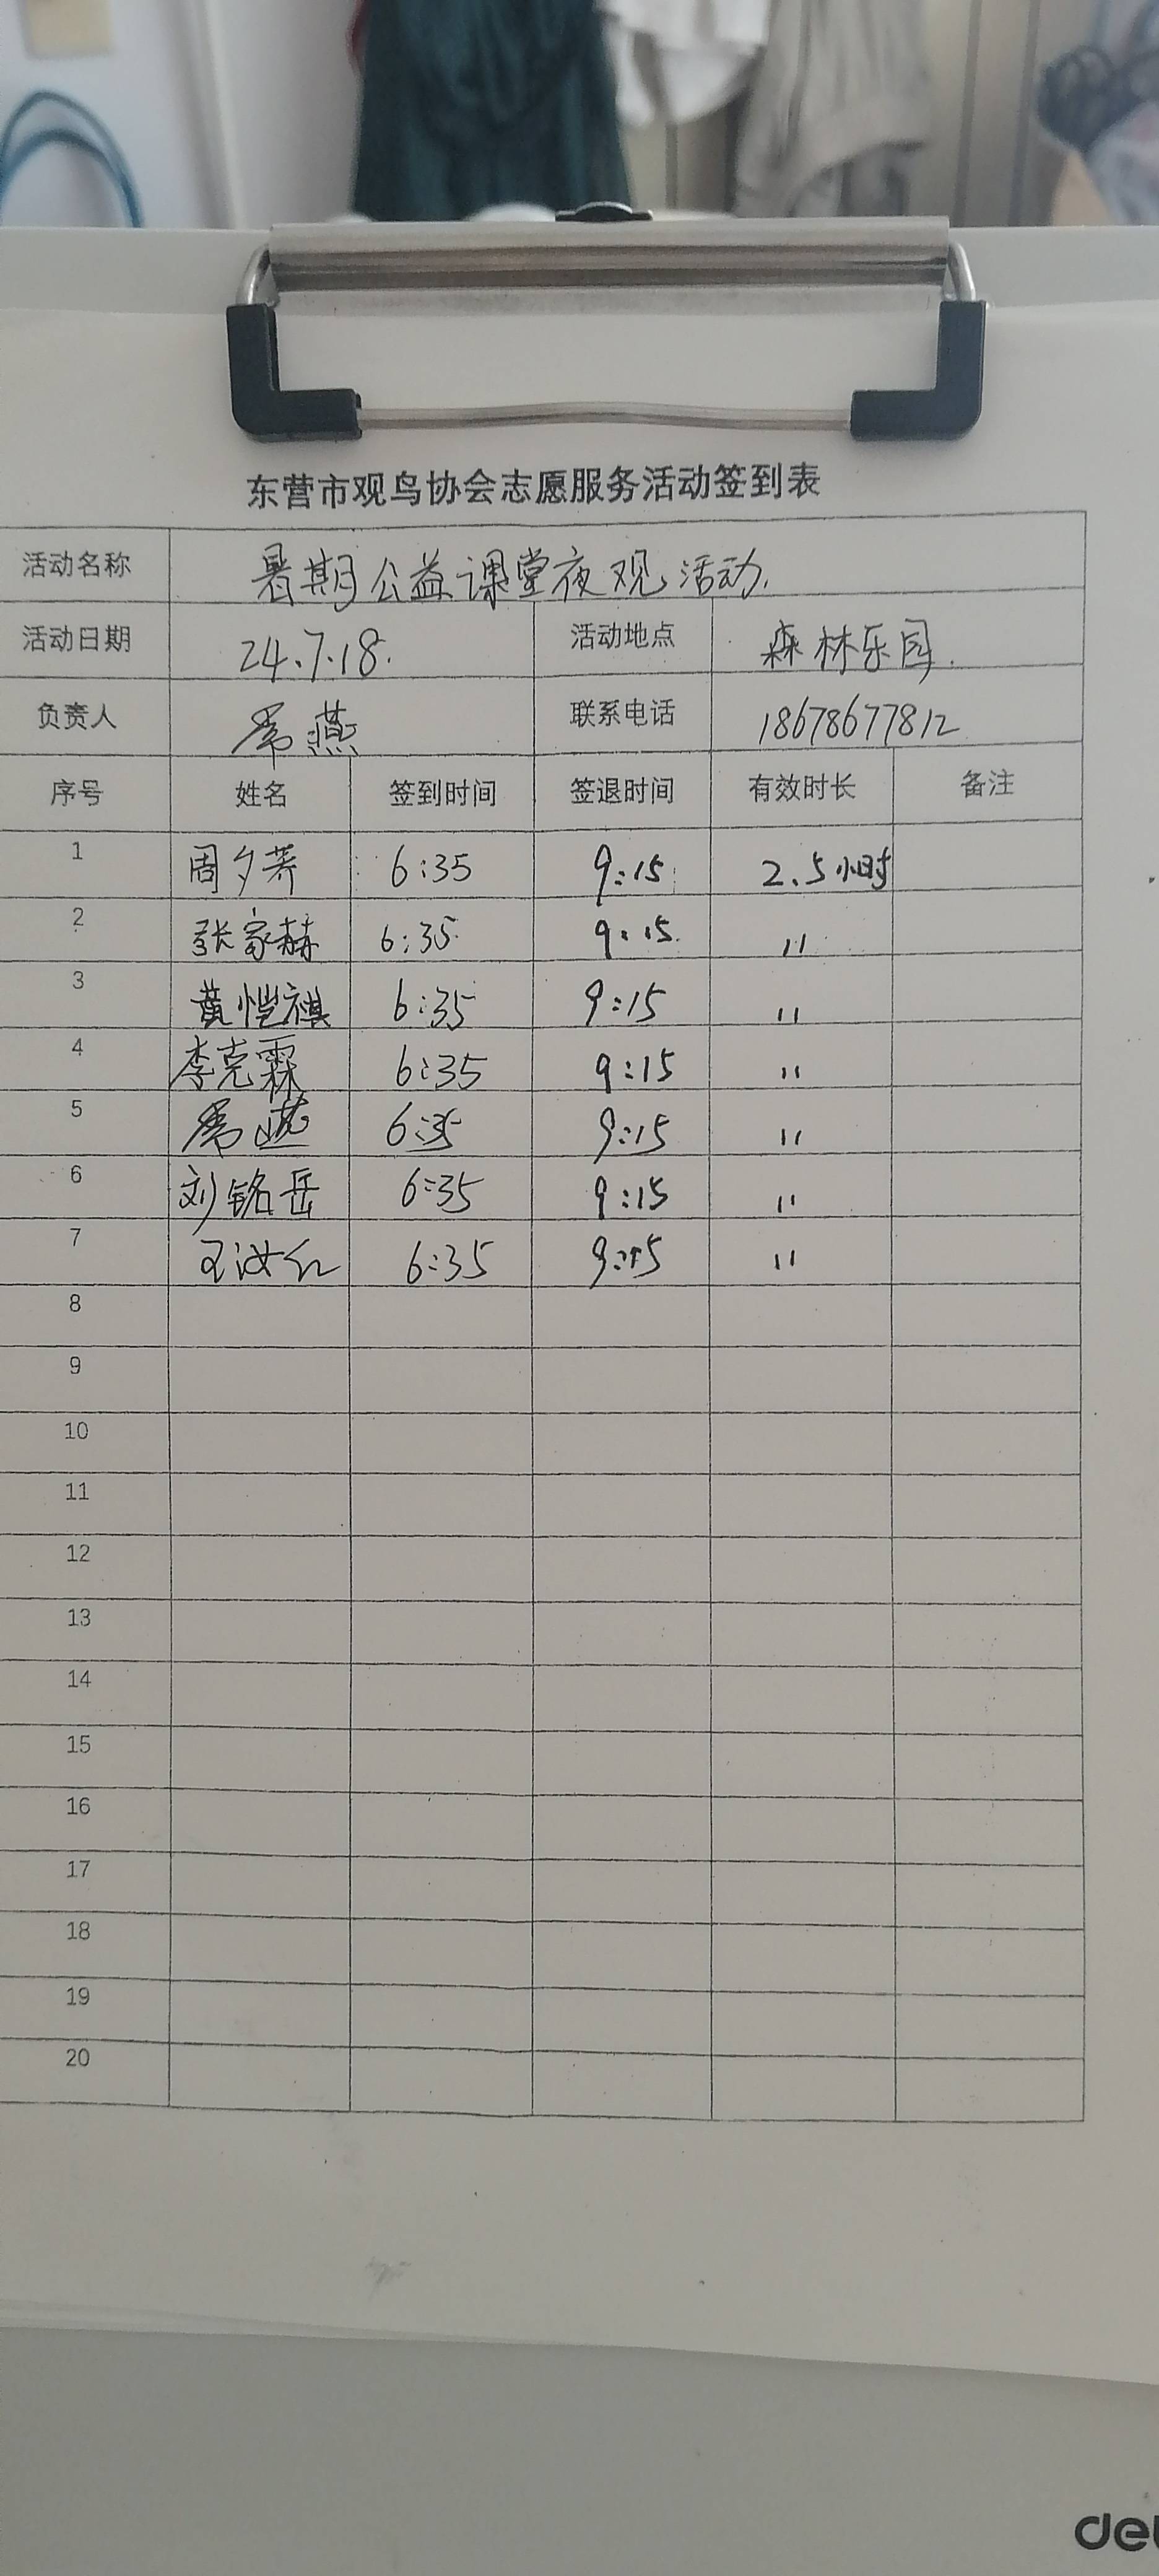 东营市观鸟协会志愿服务活动签到表
活动名称 暑期公益课堂夜观活动.
活动日期 24.7.18. 活动地点 森林乐园.
负责人 燕 联系电话 18678677812
序号 姓名 签到时间 签退时间 有效时长 备注
1 周夕荞 6:35 9:15 2.5小时
2 张家赫 6:35 9:15 〃
3 黄恺祺 6:35 9:15 〃
4 李克霖 6:35 9:15 〃
5 6:35 9:15 〃
6 刘铭岳 6:35 9:15 〃
7 王汝红 6:35 9:15 〃
8
9
10
11
12
13
14
15
16
17
18
19
20